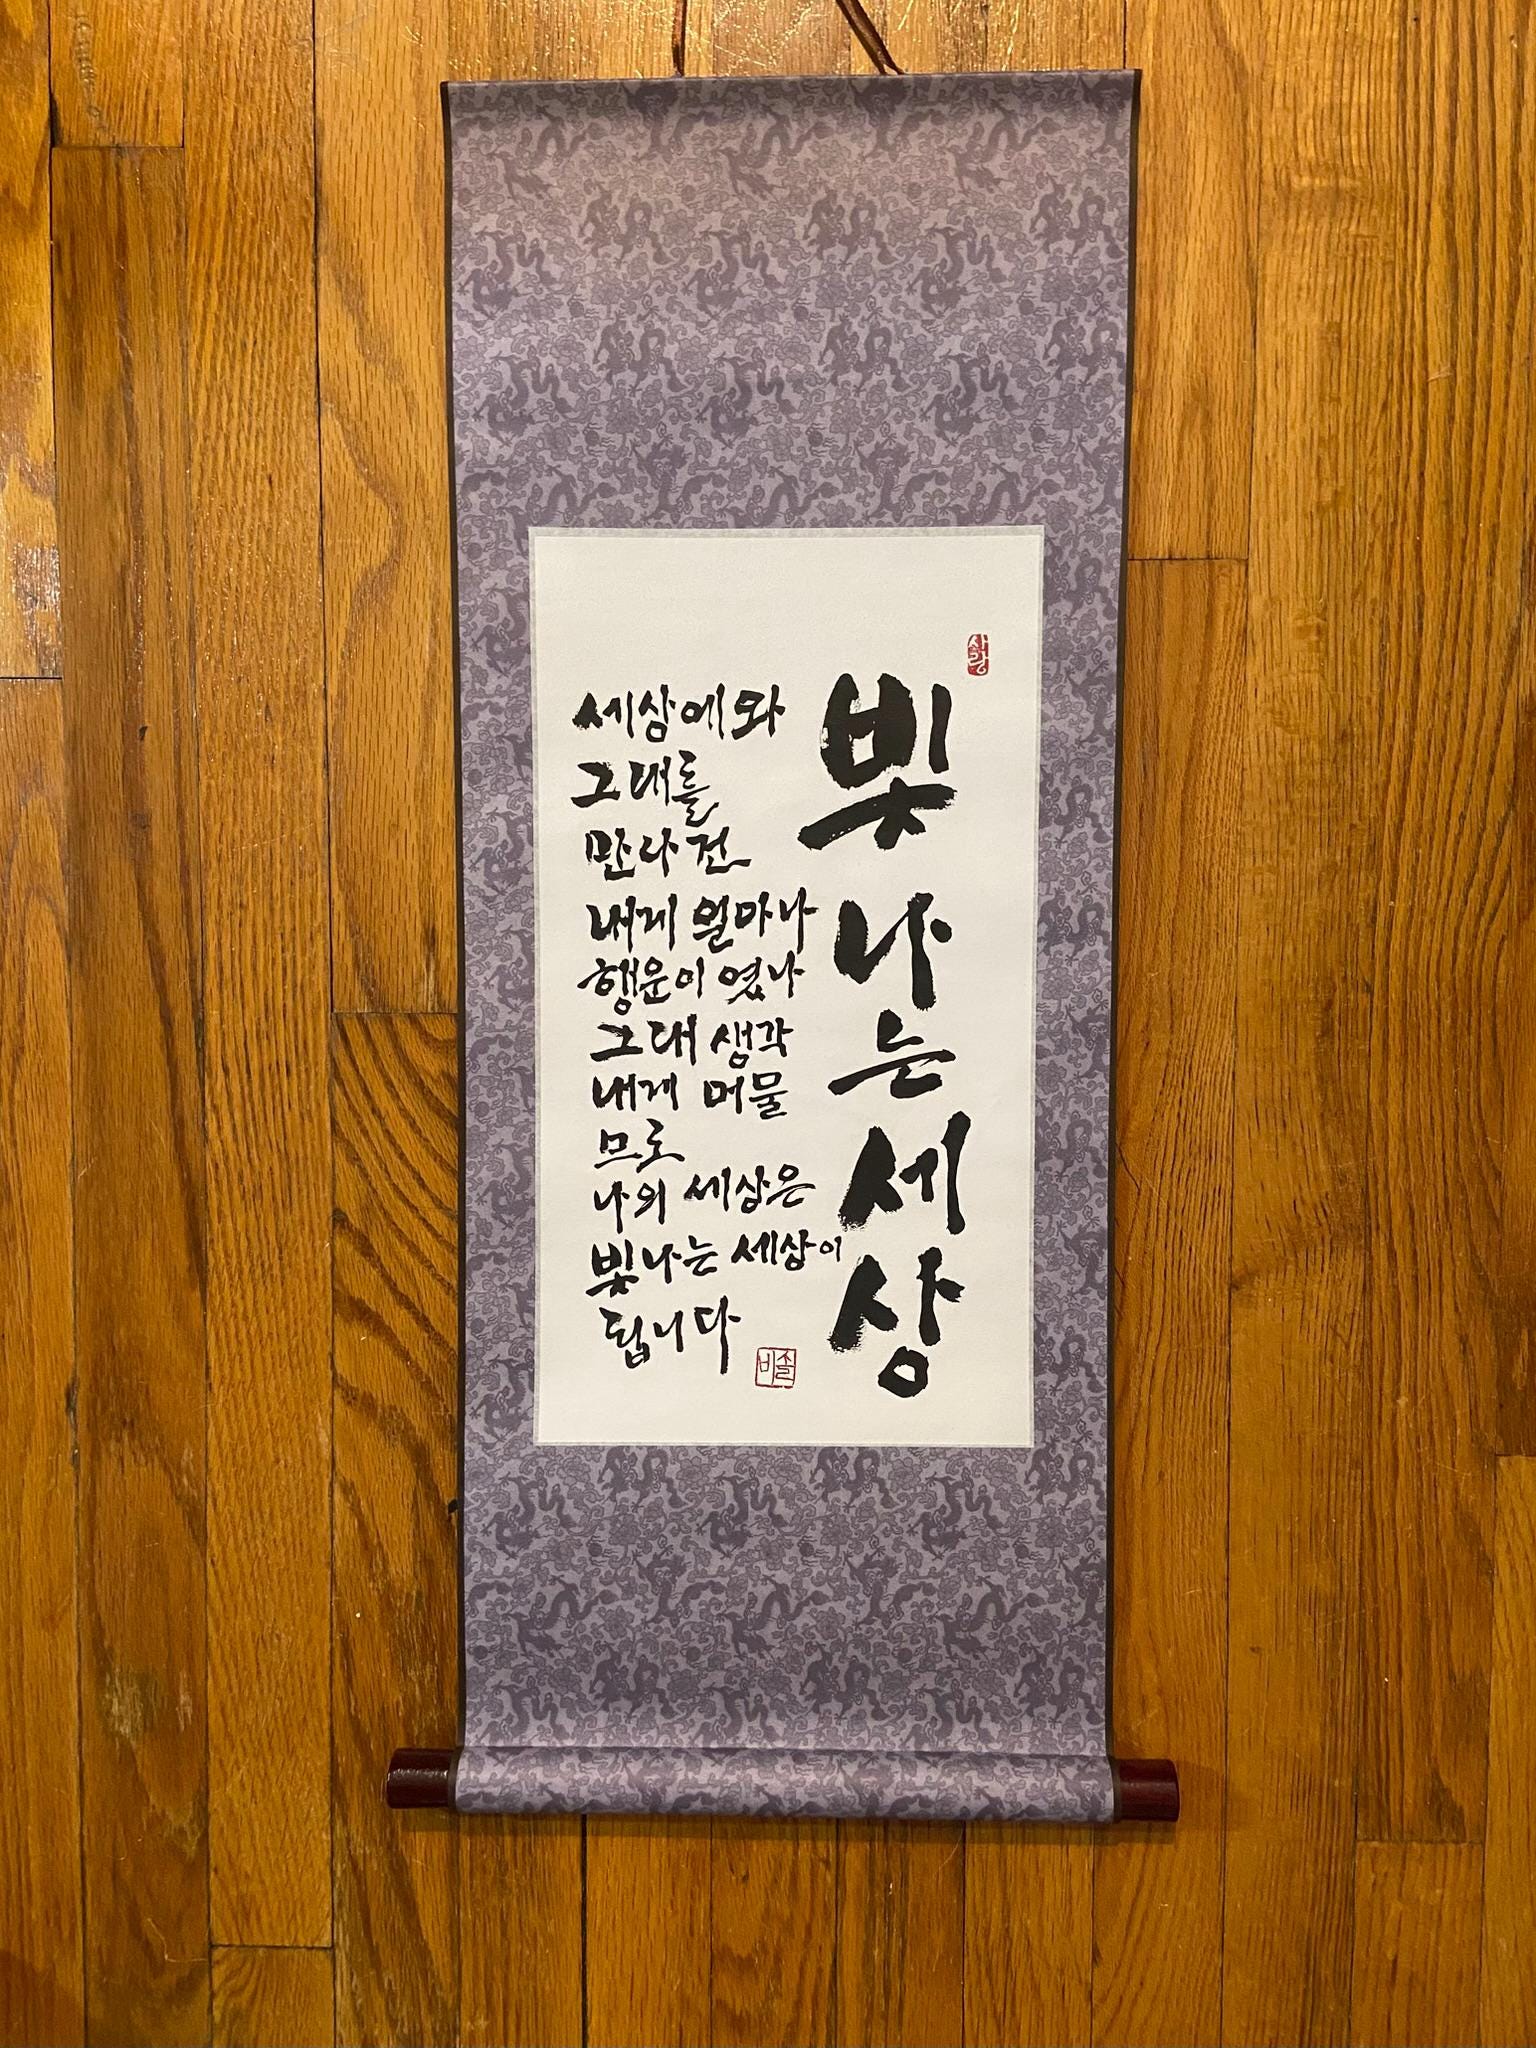 사랑
빛나는세상
세상에와
그대를
만나건
내게 얼마나
행운이 였나
그대 생각
내게 머물
므로
나의 세상은
빛나는 세상이
됩니다
솔비